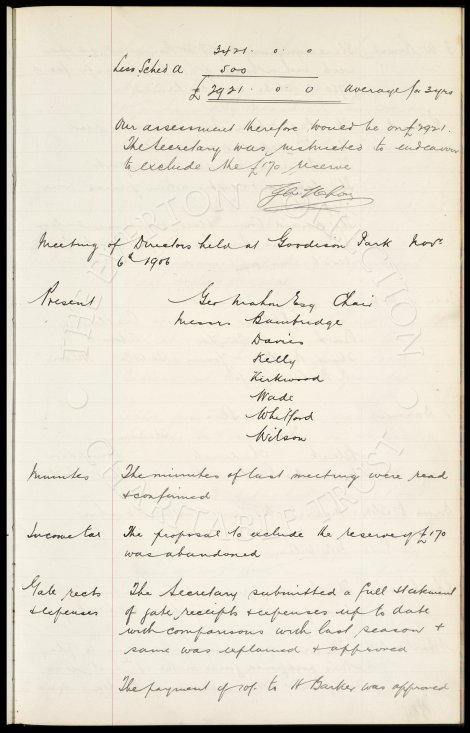 3421 . 0 . 0
Less Sched A 500
£ 2921 . 0 0 average for 3 yrs
Our assessment therefore would be on £2921.
The Secretary was instructed to endeavour
to exclude the £170 reserve
Geo Mahon
Meeting of Directors held at Goodison Park Novr
6th 1906
Present Geo Mahon Esq Chair
Messrs Bainbridge
Davies
Kelly
Kirkwood
Wade
Whitford
Wilson
Minutes The minutes of last meeting were read
& confirmed
Income tax The proposal to exclude the reserve of £170
was abandoned
Gate rects The Secretary submitted a full statement
& expenses of gate receipts & expenses up to date
with comparisons with last season &
same was explained & approved
The payment of 10/- to H Barker was approved
THE EVERTON COLLECTION
CHARITABLE TRUST